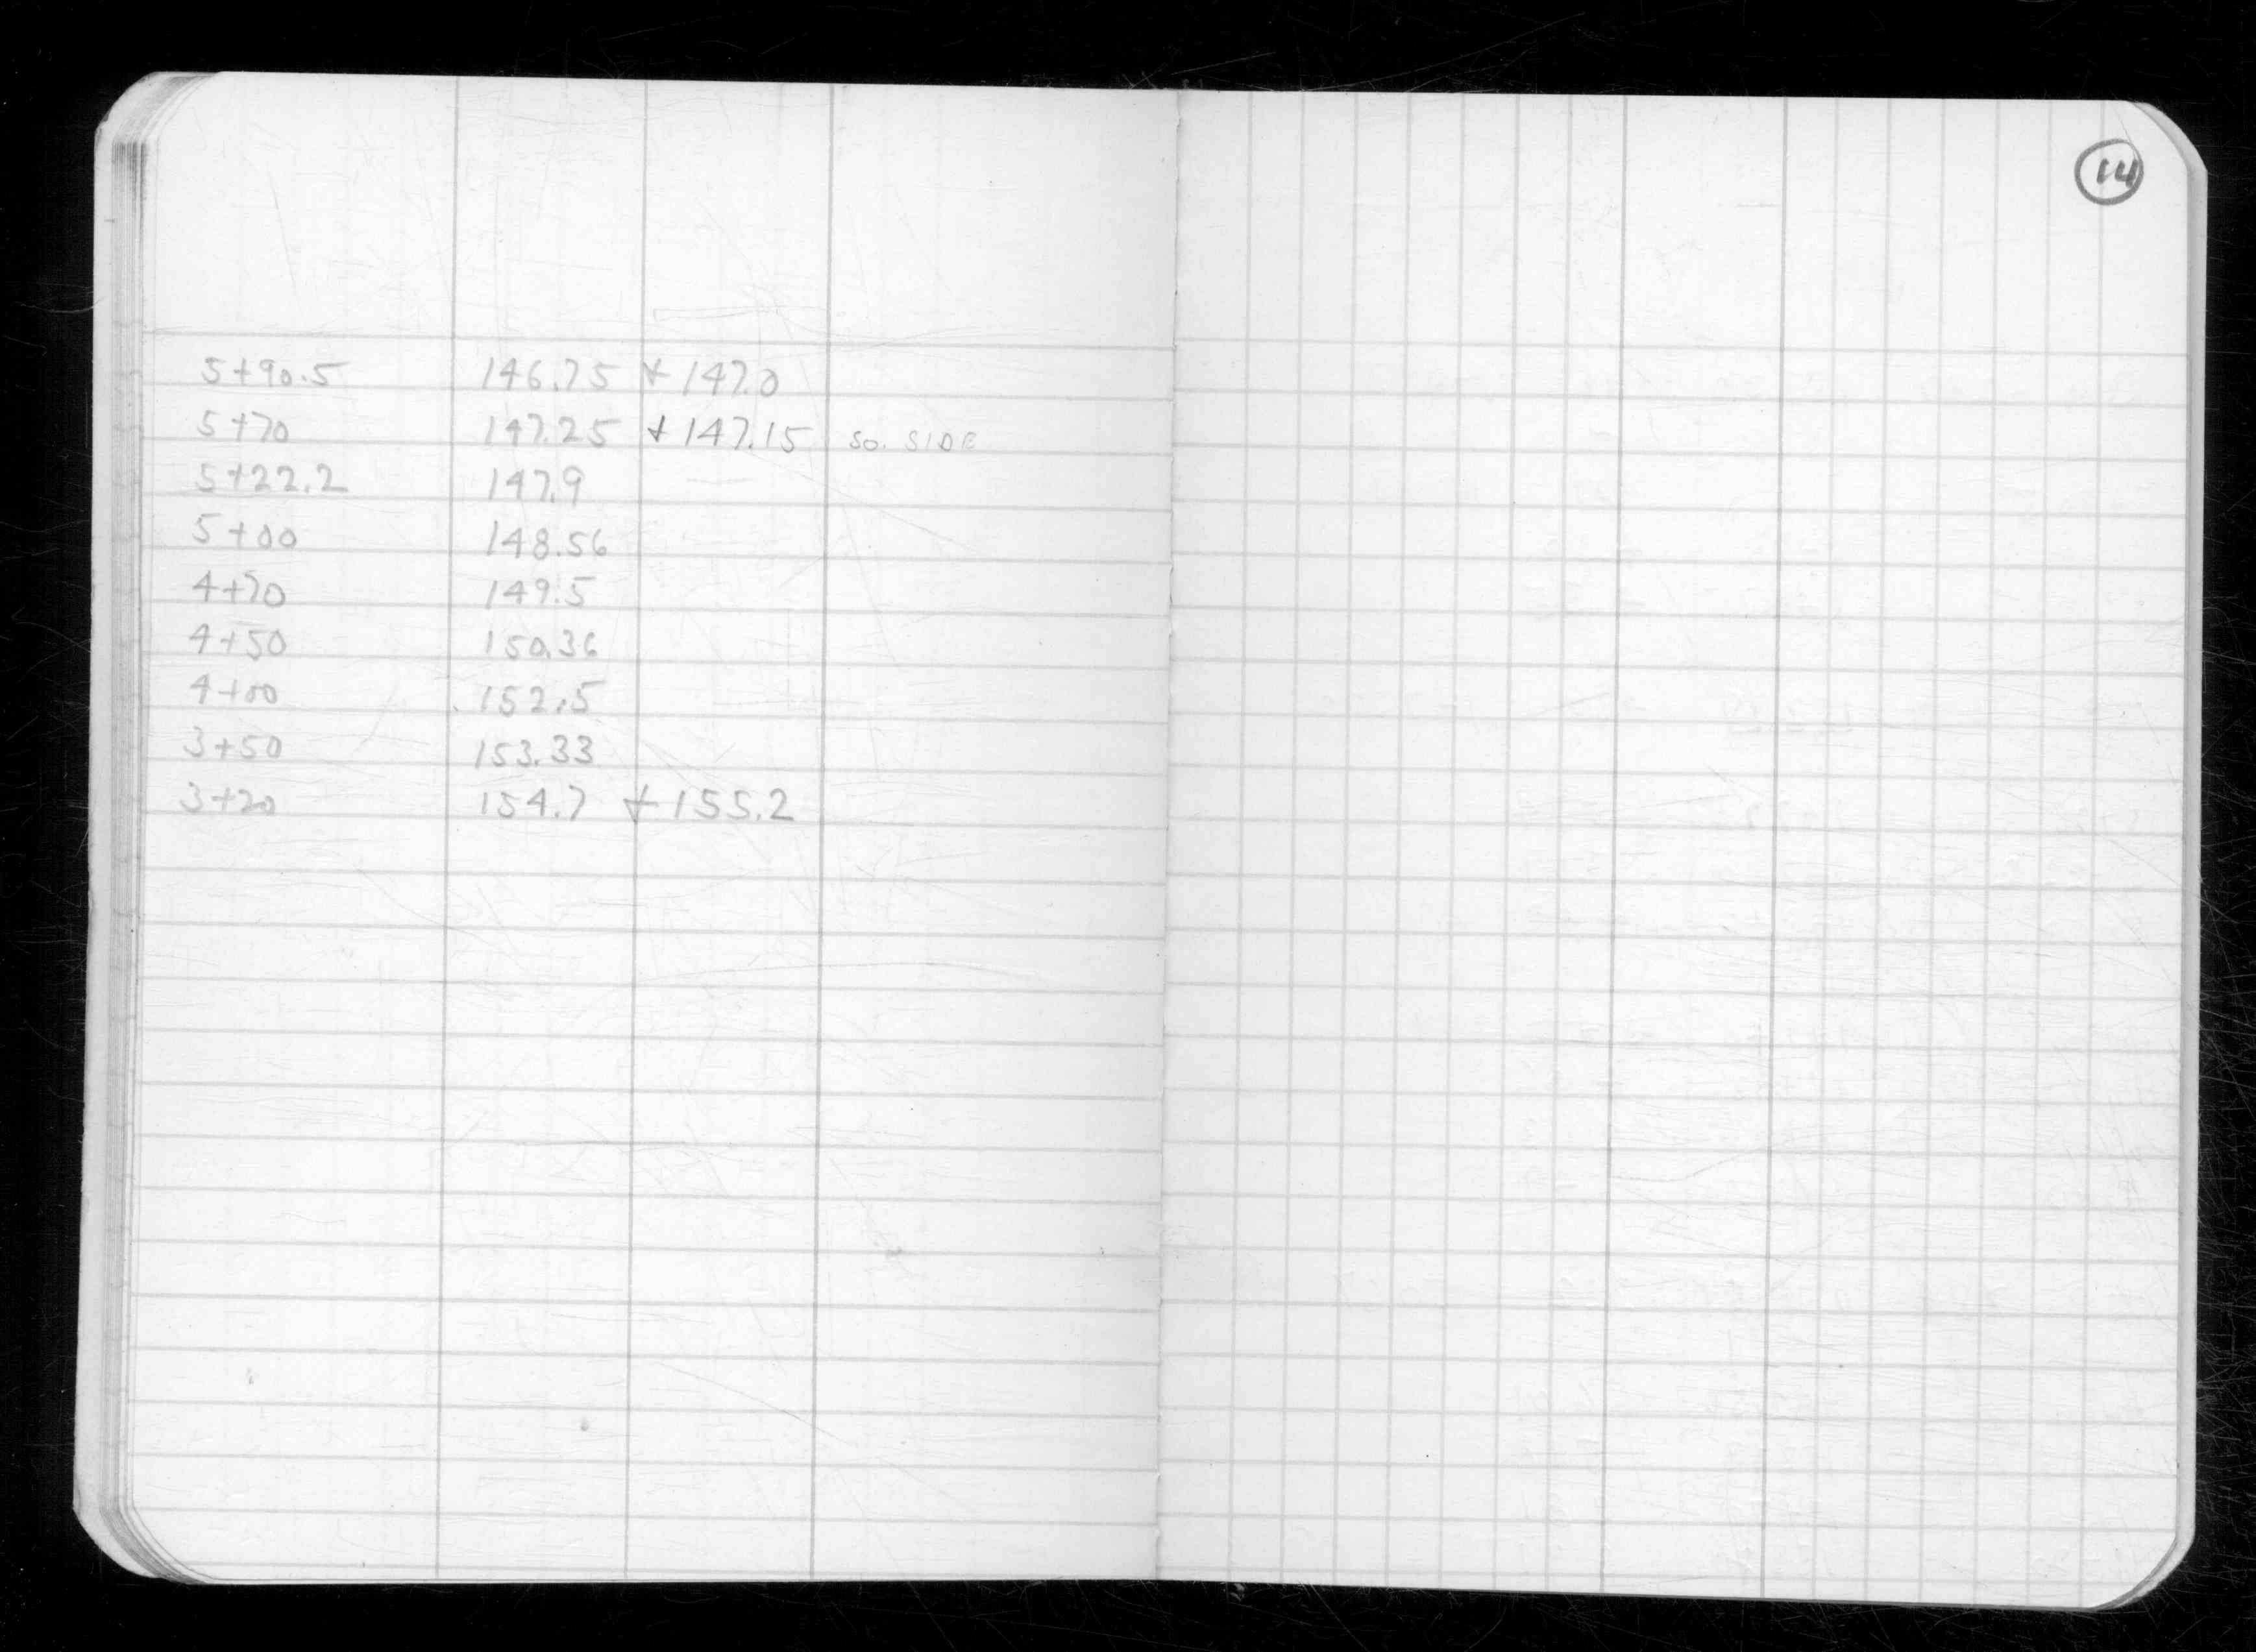 14
5+90.5 146.75 + 147.0
5+70 147.25 + 147.15 SO. SIDE
5+22.2 147.9
5+00 148.56
4+70 149.5
4+50 150.36
4+00 152.5
3+50 153.33
3+20 154.7 + 155.2